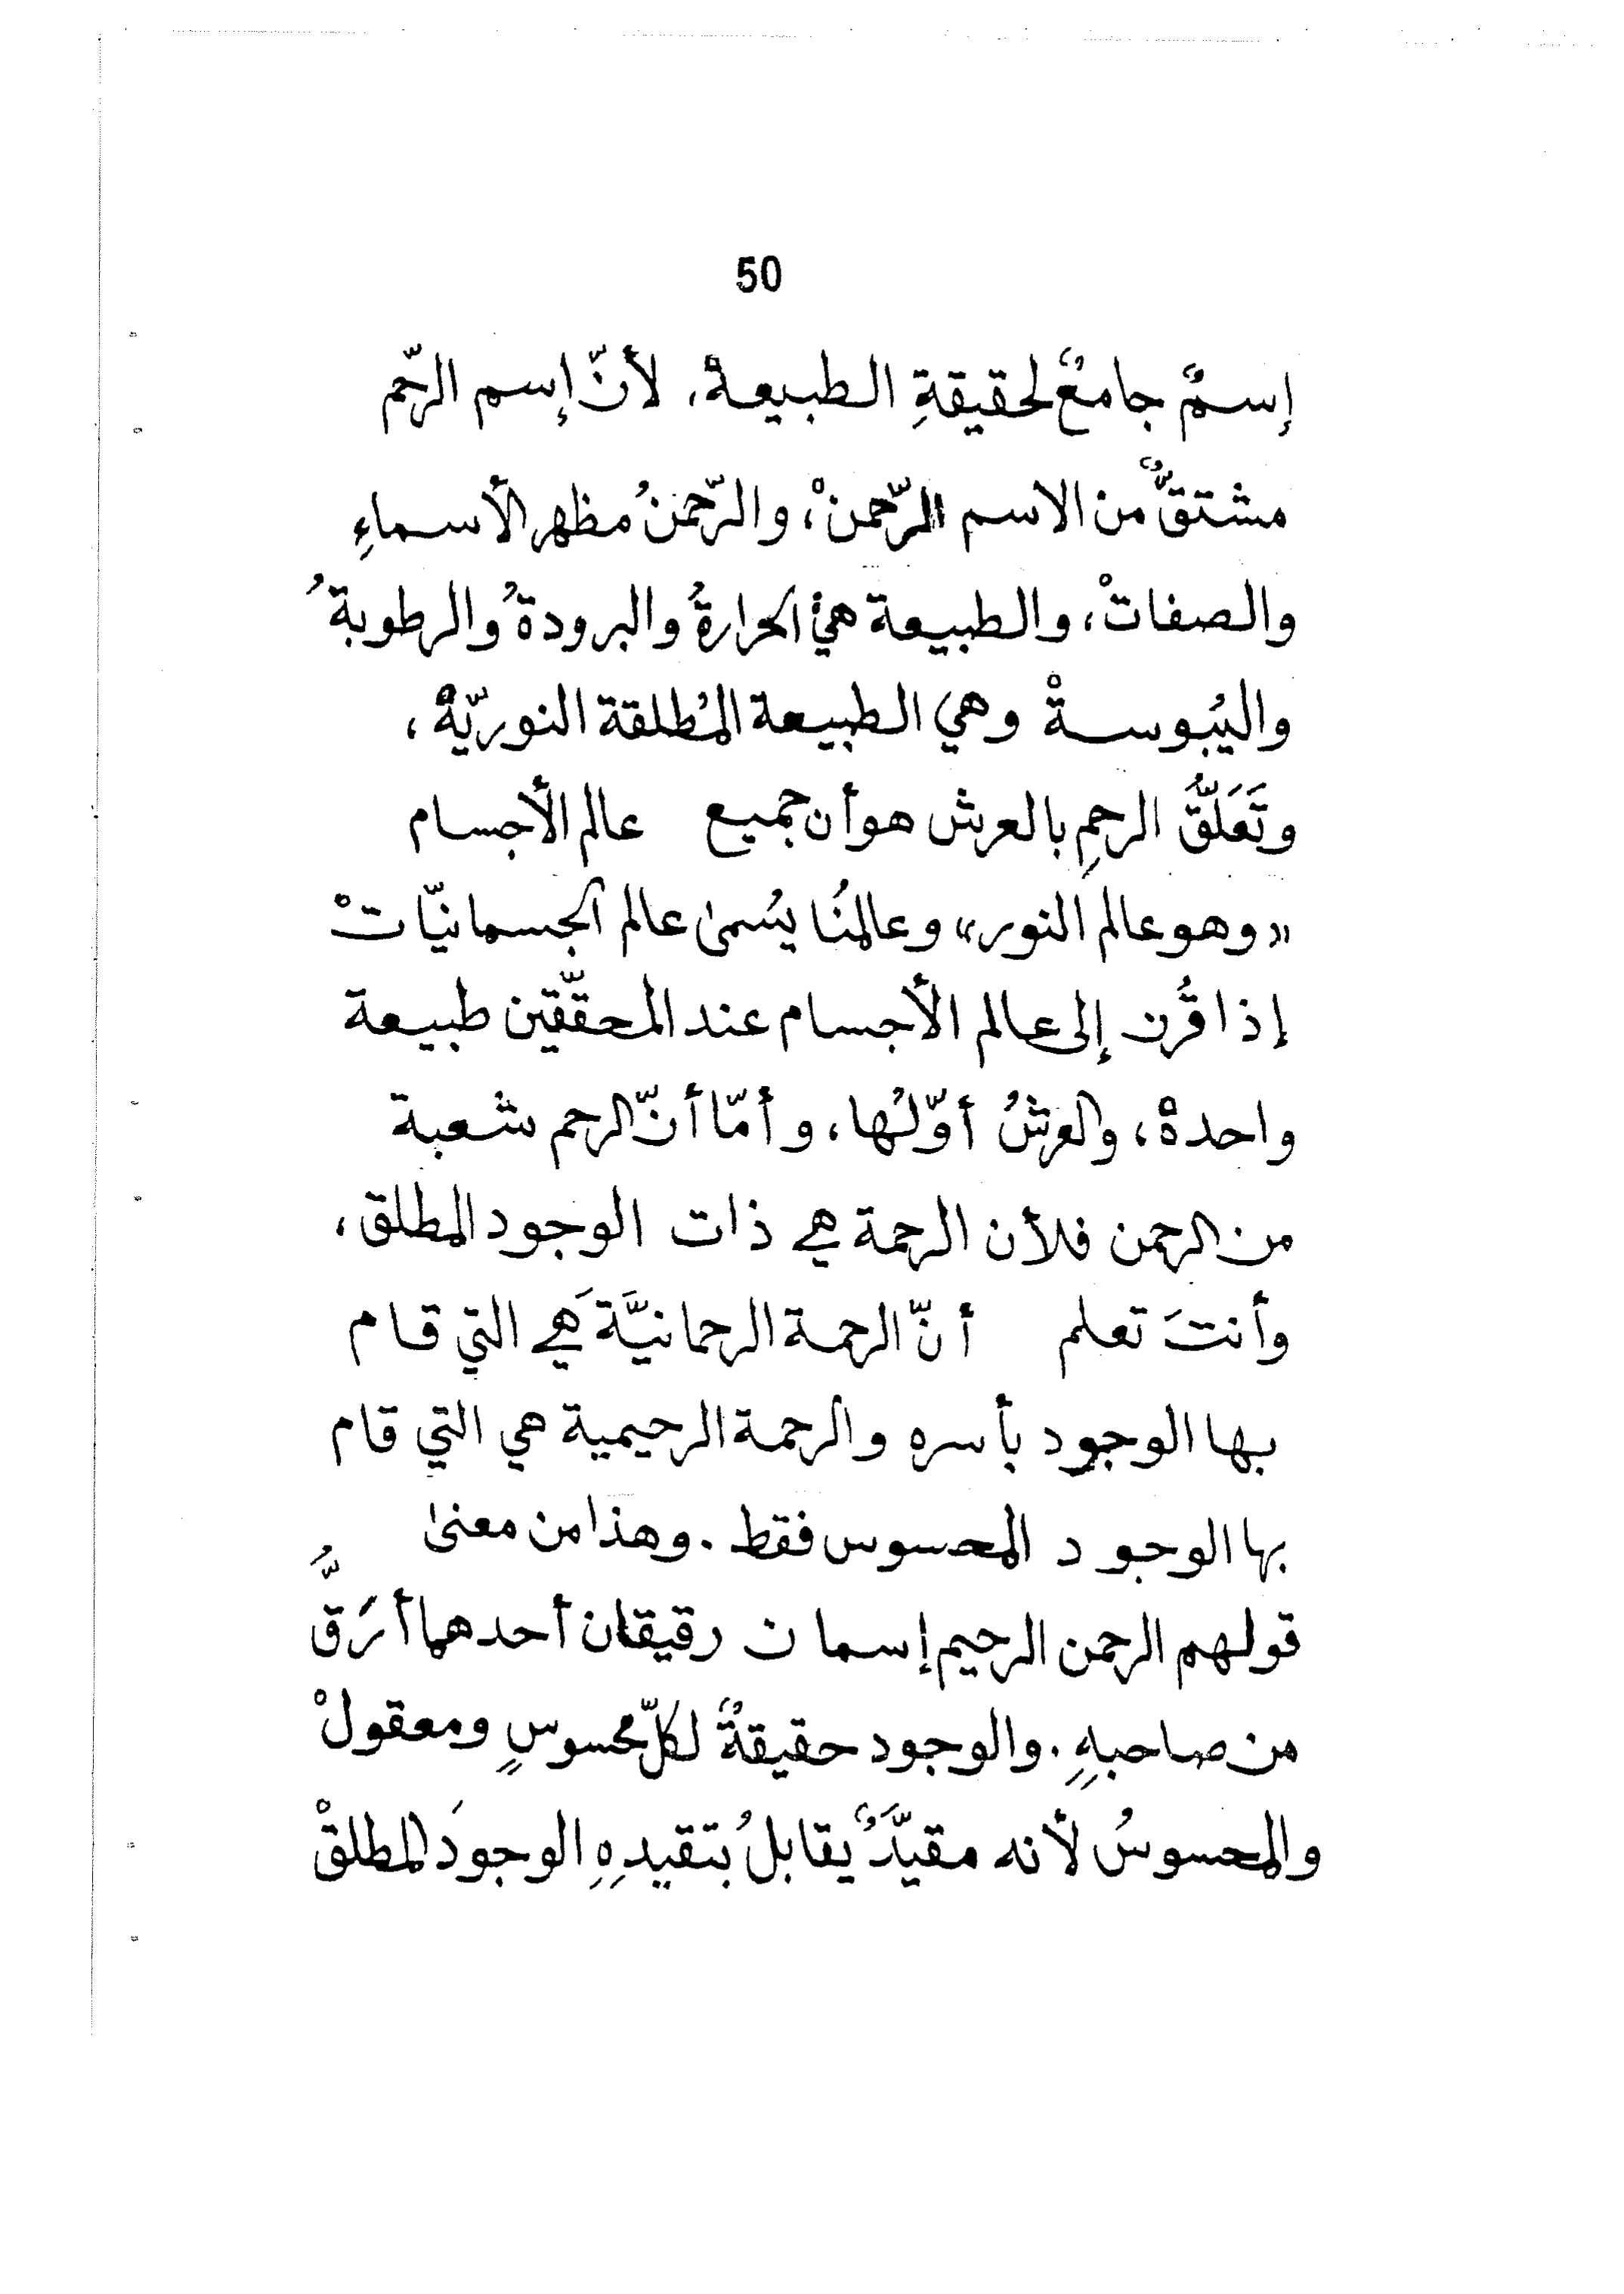 50
إسمٌ جامعٌ لحقيقةِ الطبيعهْ، لأنّ إسم الرّحم
مشتقٌّ من الاسم الرّحمنْ، والرّحمنُ مظهر الأسماءِ
والصفاتْ، والطبيعة هيَ الحرارةُ والبرودةُ والرطوبةُ
واليُبوسةْ وهي الطبيعة المُطلقة النوريّهْ،
وتَعَلّقُ الرحمِ بالعرش هو أن جميع عالم الأجسام
«وهو عالم النور» وعالمنُا يسُمىٰ عالم الجسمانيّاتْ
إذا قُرن إلى عالم الأجسام عند المحقّقين طبيعة
واحدهْ، والعرشُ أوّلهُا، وأمّا أنّ الرحم شعبة
من الرحمن فلأن الرحمة هي ذات الوجود المطلق،
وأنتَ تعلم أنّ الرحمة الرحمانيَّة هَي التي قام
بها الوجود بأسره والرحمة الرحيمية هي التي قام
بها الوجود المحسوس فقط. وهذا من معنىٰ
قولهم الرحمن الرحيم إسمان رقيقان أحدهما أَرَقُّ
من صاحبهِ. والوجود حقيقةٌ لكلّ محسوسٍ ومعقولْ
والمحسوسُ لأنه مقيَّدٌ يقابلُ بتقيدِهِ الوجودَ المطلقْ